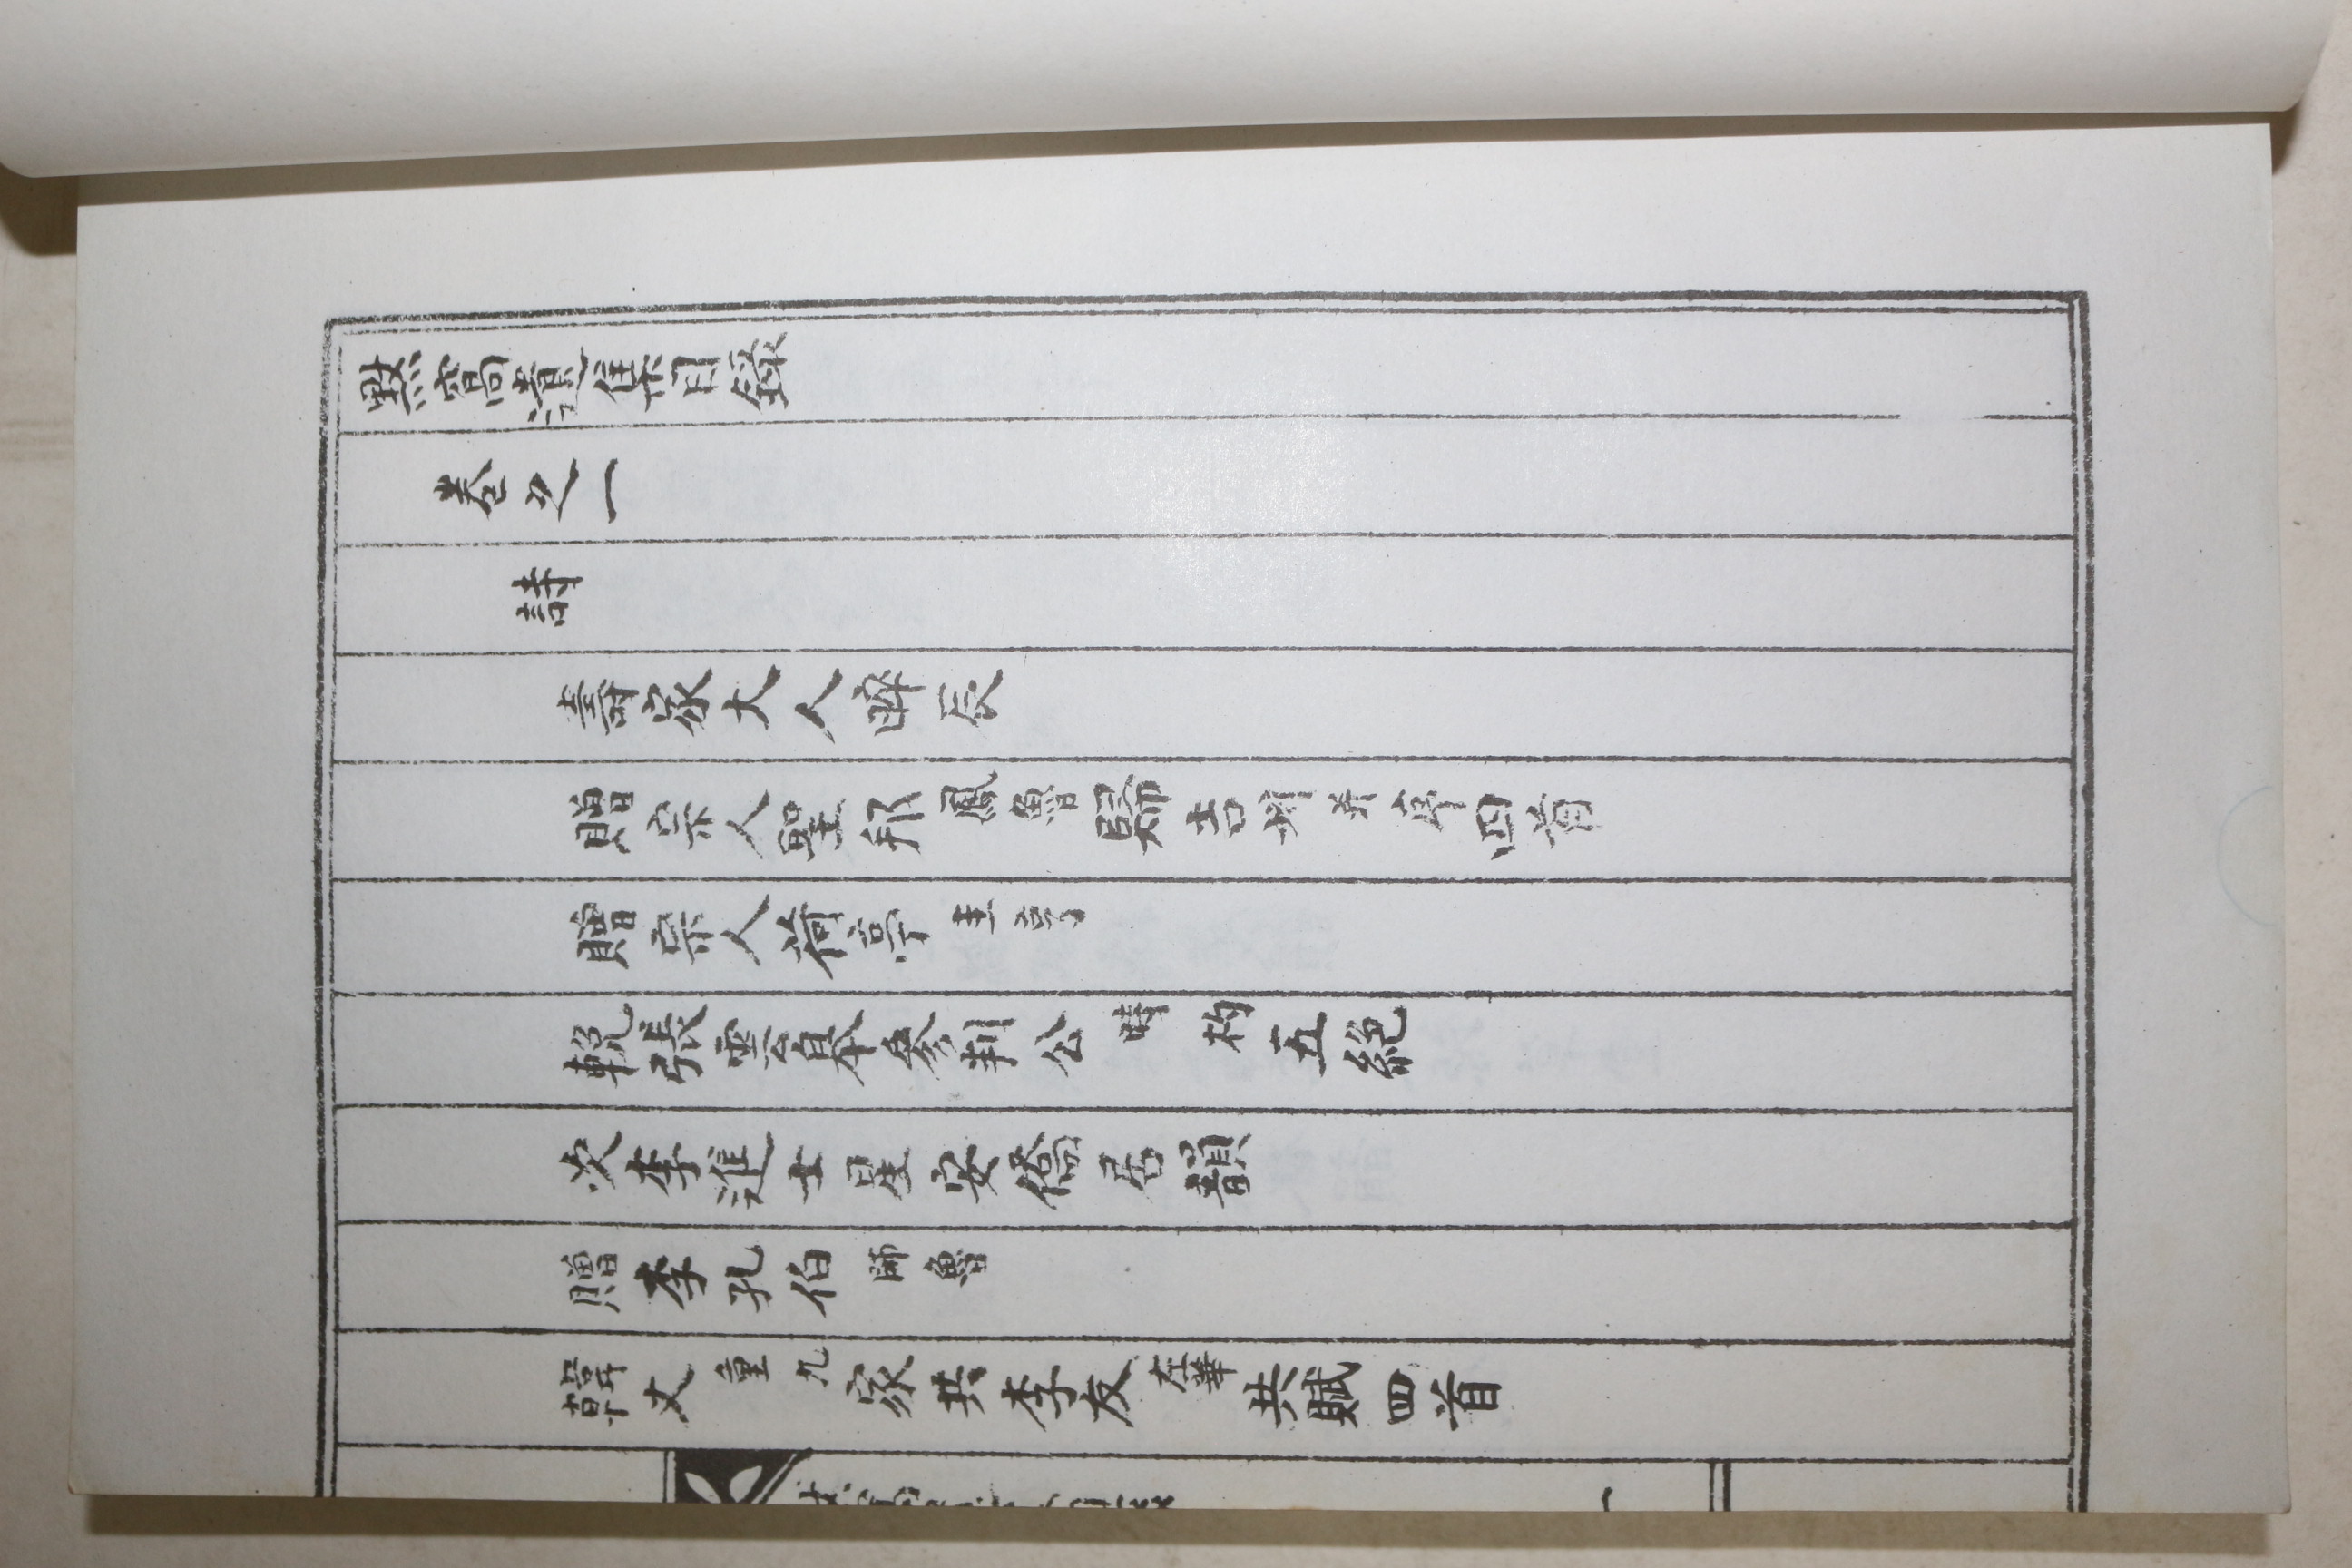 默窩遺集目錄
卷之一
詩
壽家大人晬辰
贈宗人聖邦鳳魯歸吉州并序四首
贈宗人荷亭圭亨
輓張雲皋參判公時杓五絶
次李進士星安僑居韻
贈李孔伯師魯
韓丈重九家共李友在華共賦四首